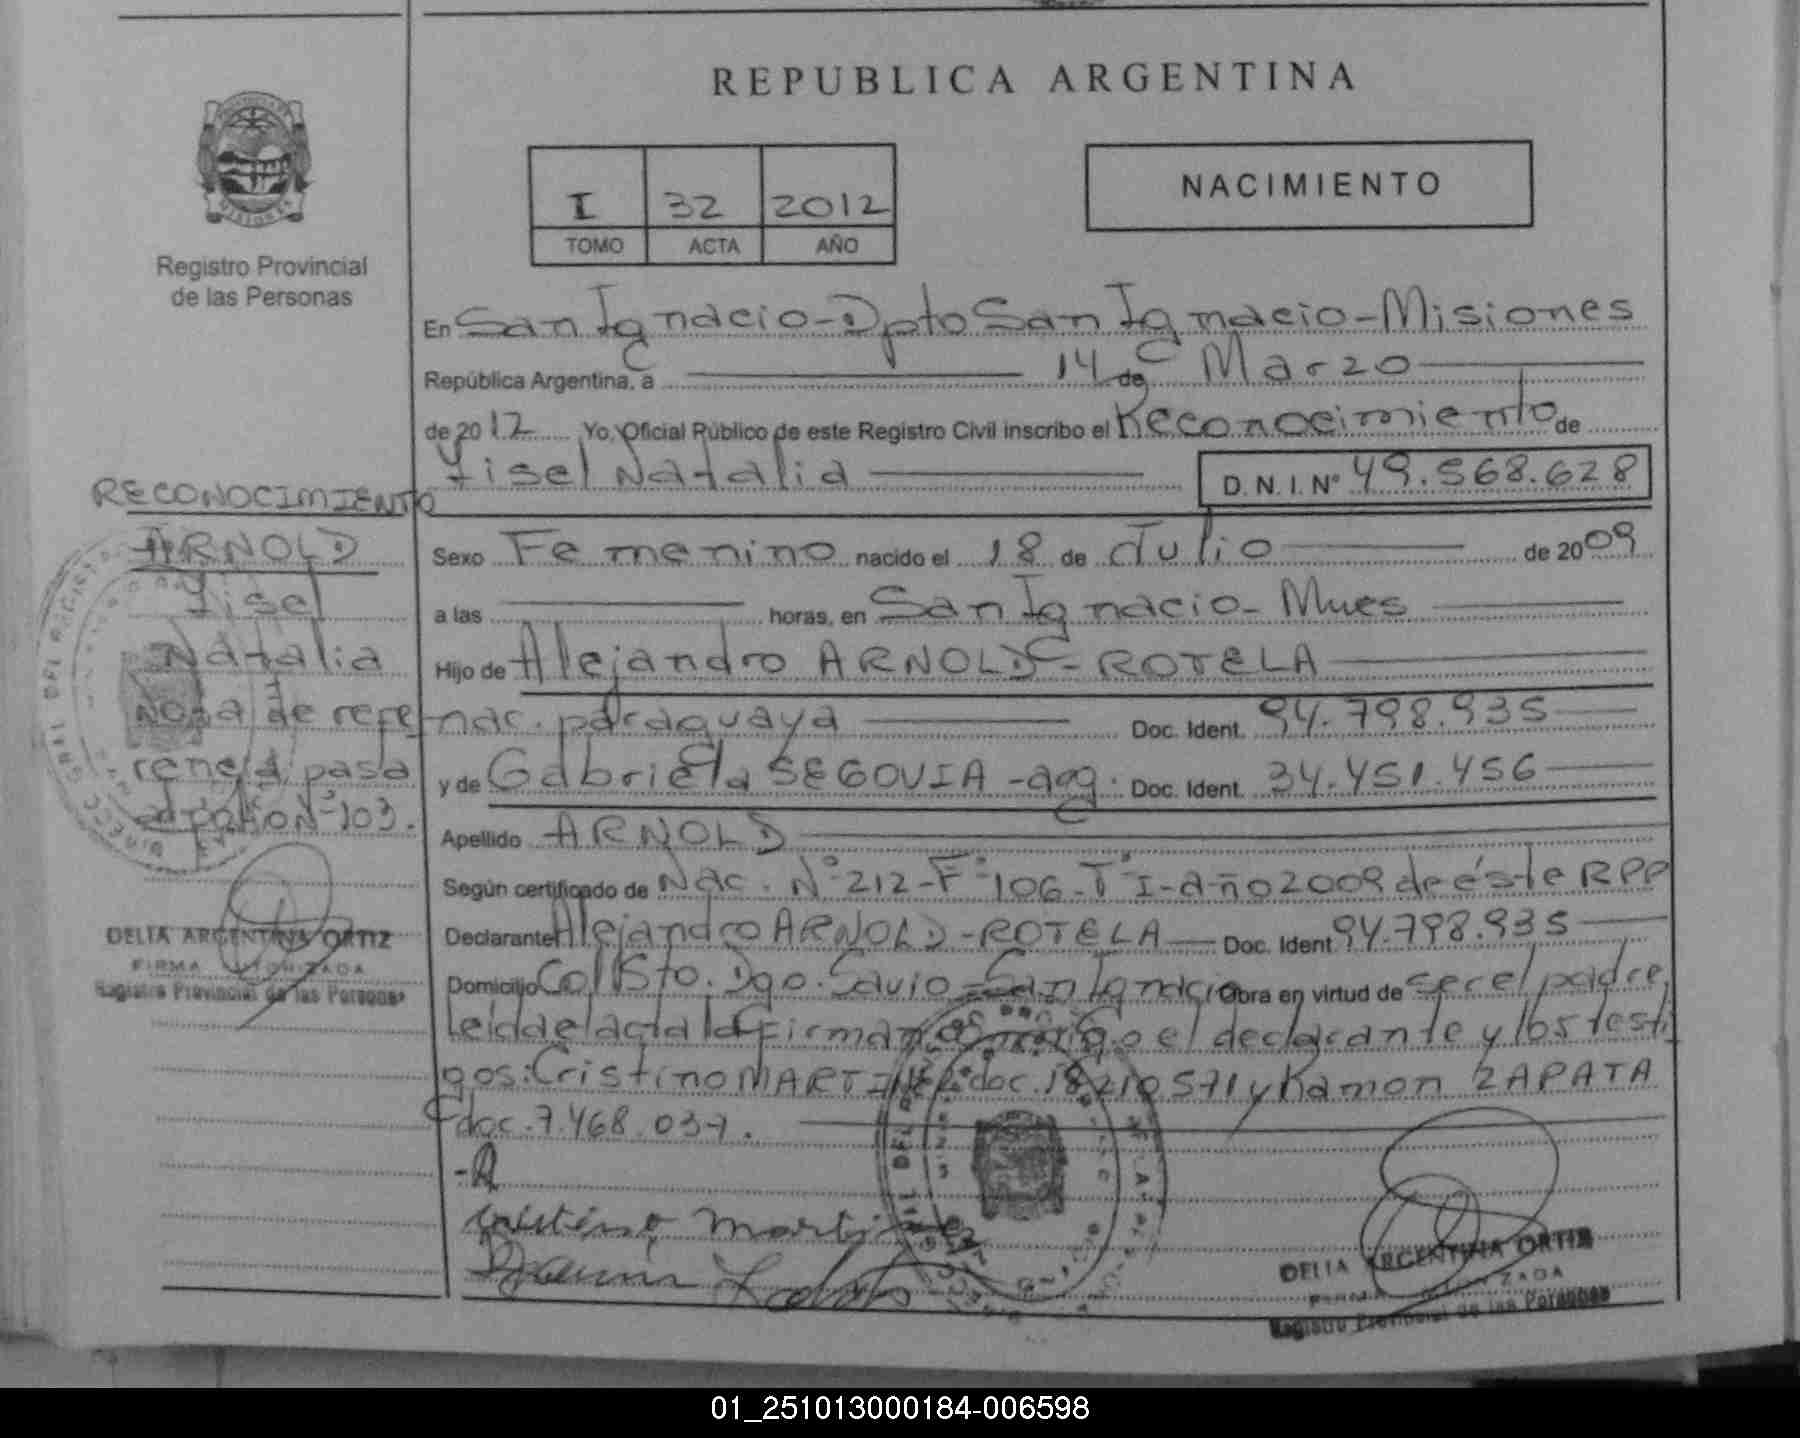 REPUBLICA ARGENTINA
I 32 2012
TOMO ACTA AÑO
NACIMIENTO
Registro Provincial
de las Personas
En San Ignacio-Dpto San Ignacio-Misiones
República Argentina, a 14 de Marzo
de 2012 Yo, Oficial Público de este Registro Civil inscribo el Reconocimiento de
Yisel Natalia D.N.I. N° 49.568.628
Sexo Femenino nacido el 18 de Julio de 2009
a las horas, en San Ignacio- Mnes
Hijo de Alejandro ARNOLD-ROTELA
nac. paraguaya Doc. Ident. 94.798.935
y de Gabriela SEGOVIA -arg. Doc. Ident. 34.451.456
Apellido ARNOLD
Según certificado de Nac. N° 212-F° 106-T° I-año 2009 de éste RPP
Declarante Alejandro ARNOLD-ROTELA Doc. Ident 94.798.935
Domicilio Col Sto. Dgo. Savio-San Ignacio Obra en virtud de ser el padre,
leída el acta la firman conmigo el declarante y los testi
gos: Cristino MARTINEZ doc. 18210571 y Ramon ZAPATA
doc. 7.468.037.
RECONOCIMIENTO
ARNOLD
Yisel
Natalia
Nota de refe
rencia pasa
al folio N° 103.
DELIA ARGENTINA ORTIZ
FIRMA AUTORIZADA
Registro Provincial de las Personas
Cristino Martinez
DELIA ARGENTINA ORTIZ
FIRMA AUTORIZADA
Registro Provincial de las Personas
01_251013000184-006598